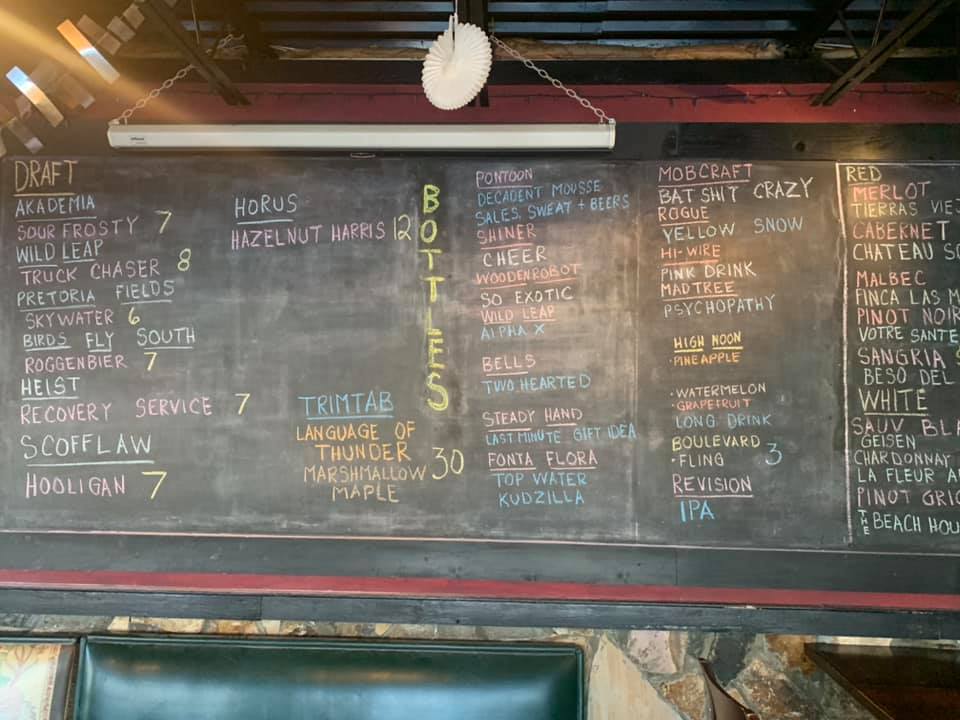 DRAFT
AKADEMIA
SOUR FROSTY 7
WILD LEAP
TRUCK CHASER 8
PRETORIA FIELDS
SKYWATER 6
BIRDS FLY SOUTH
ROGGENBIER 7
HEIST
RECOVERY SERVICE 7
SCOFFLAW
HOOLIGAN 7
HORUS
HAZELNUT HARRIS 12
TRIMTAB
LANGUAGE OF
THUNDER
MARSHMALLOW 30
MAPLE
BOTTLES
PONTOON
DECADENT MOUSSE
SALES, SWEAT + BEERS
SHINER
CHEER
WOODENROBOT
SO EXOTIC
WILD LEAP
ALPHA X
BELLS
TWO HEARTED
STEADY HAND
LAST MINUTE GIFT IDEA
FONTA FLORA
TOP WATER
KUDZILLA
MOBCRAFT
BAT SHIT CRAZY
ROGUE
YELLOW SNOW
HI-WIRE
PINK DRINK
MADTREE
PSYCHOPATHY
HIGH NOON
·PINEAPPLE
·WATERMELON
·GRAPEFRUIT
LONG DRINK
BOULEVARD
·FLING 3
REVISION
IPA
RED
MERLOT
TIERRAS VIEJ
CABERNET
CHATEAU SO
MALBEC
FINCA LAS M
PINOT NOIR
VOTRE SANTE
SANGRIA
BESO DEL
WHITE
SAUV BLA
GEISEN
CHARDONNAY
LA FLEUR A
PINOT GRIG
THE BEACH HOU